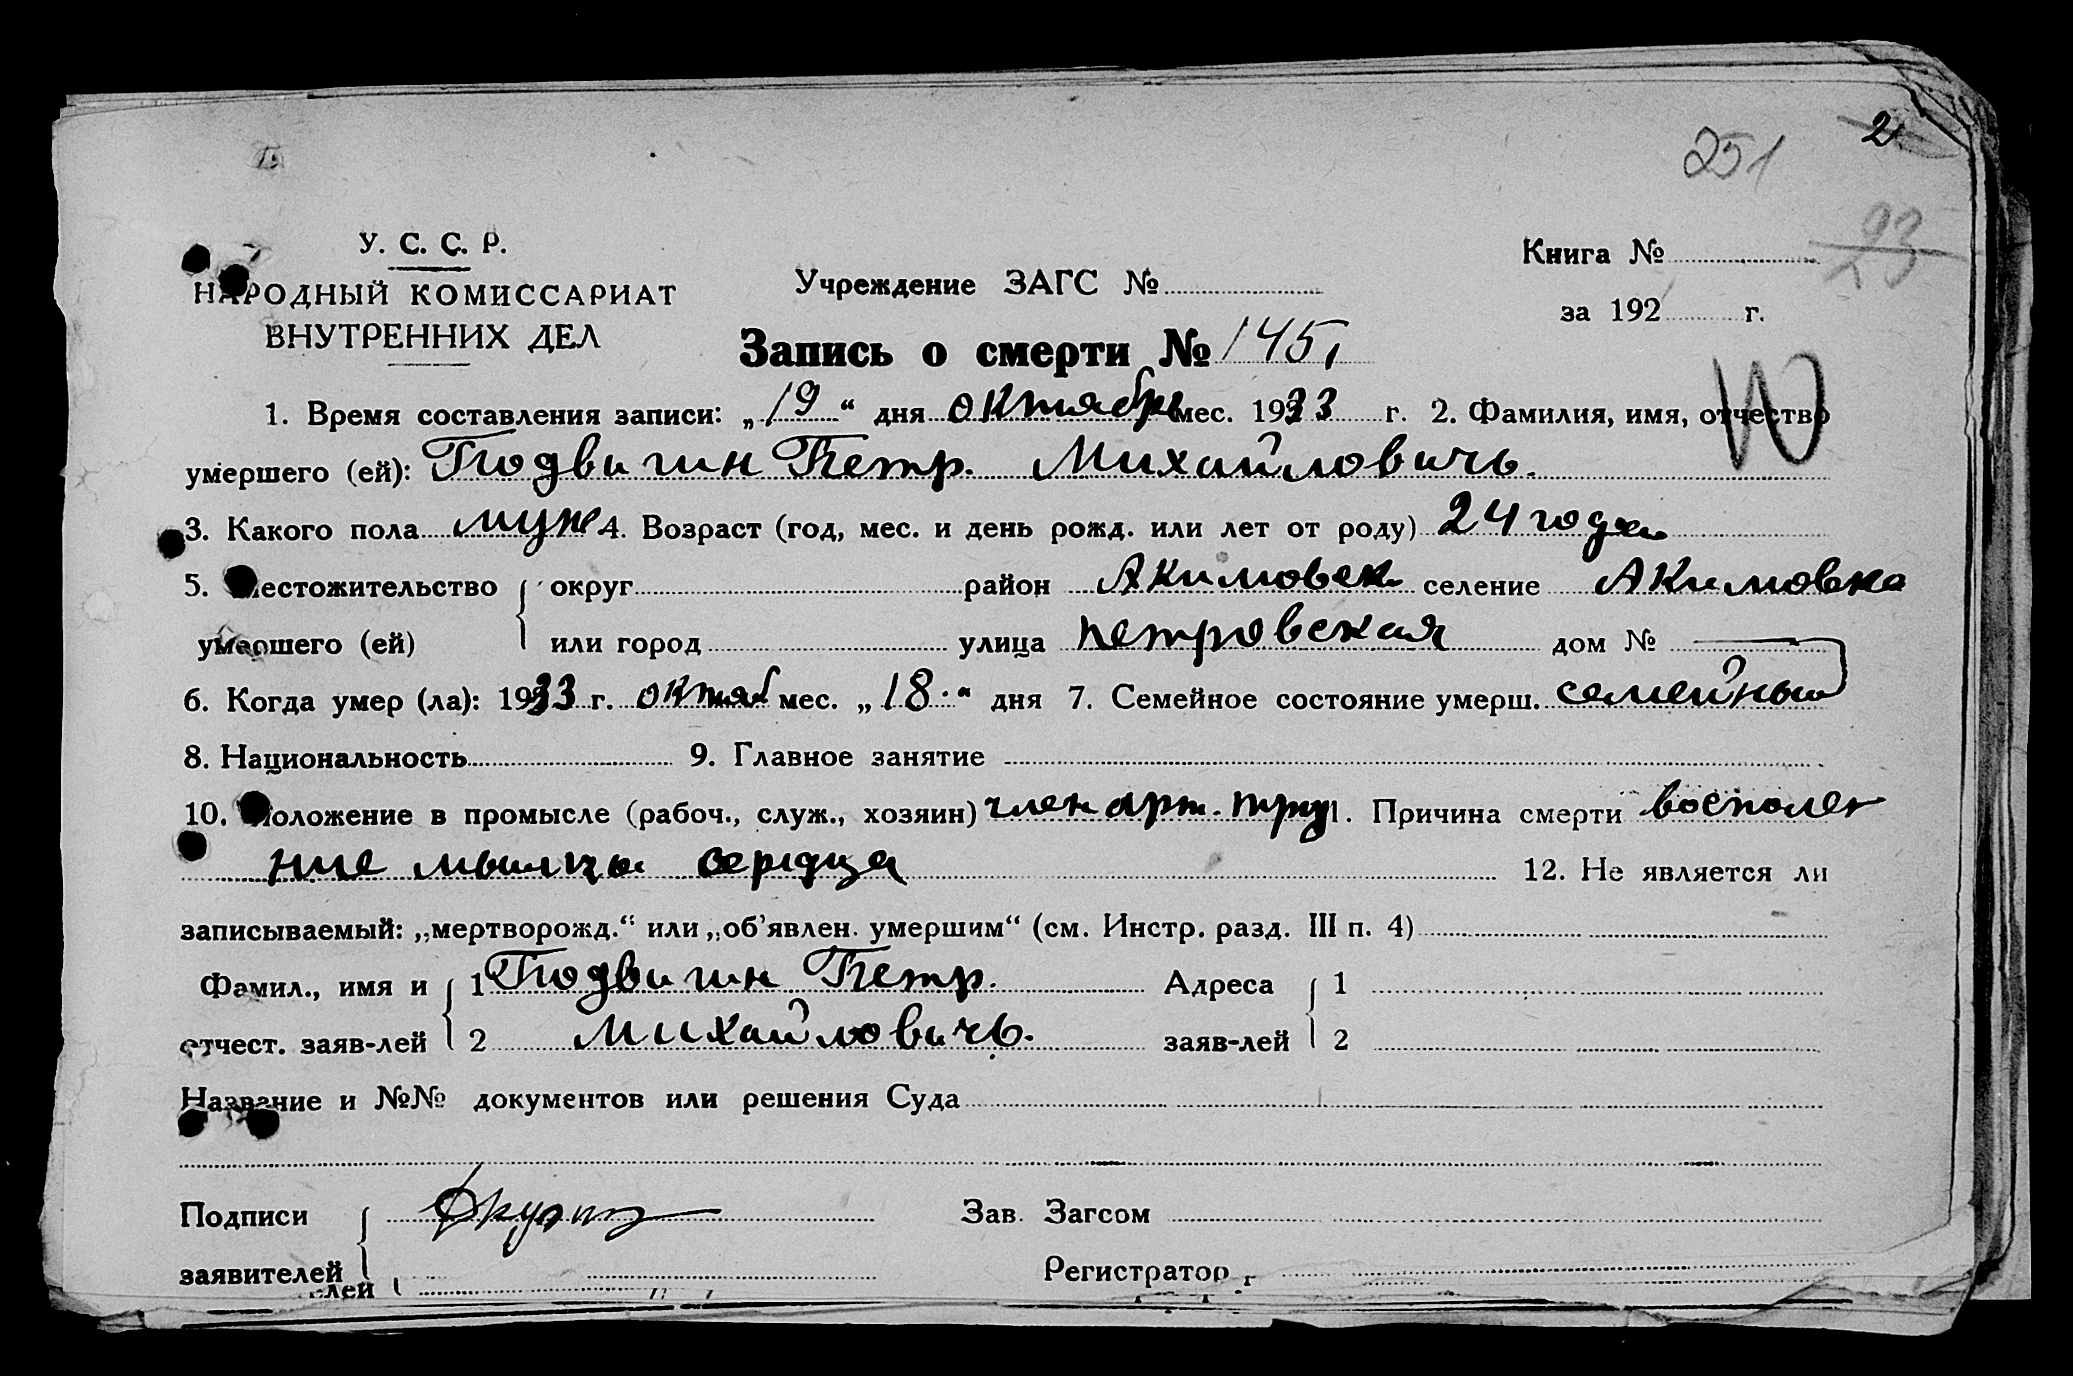 2
251
23
У. С. С. Р.
НАРОДНЫЙ КОМИССАРИАТ
ВНУТРЕННИХ ДЕЛ
Учреждение ЗАГС №
Книга №
за 192 г.
Запись о смерти № 145
1. Время составления записи: „19“ дня октября мес. 1933 г. 2. Фамилия, имя, отчество
умершего (ей): Подвигин Петр. Михайловичь.
3. Какого пола муж 4. Возраст (год, мес. и день рожд. или лет от роду) 24 года
5. Местожительство округ район Акимовск. селение Акимовка
умершего (ей) или город улица петровская дом № —
6. Когда умер (ла): 1933 г. октяб мес. „18.“ дня 7. Семейное состояние умерш. семейный
8. Национальность 9. Главное занятие
10. Положение в промысле (рабоч., служ., хозяин) член арт. труд 11. Причина смерти восполе
ние мышцы сердца 12. Не является ли
записываемый: „мертворожд.“ или „об’явлен. умершим“ (см. Инстр. разд. III п. 4)
Фамил., имя и 1 Подвигин Петр. Адреса 1
отчест. заяв-лей 2 Михайловичь. заяв-лей 2
Название и №№ документов или решения Суда
Подписи Зав. Загсом
заявителей Регистратор
лей